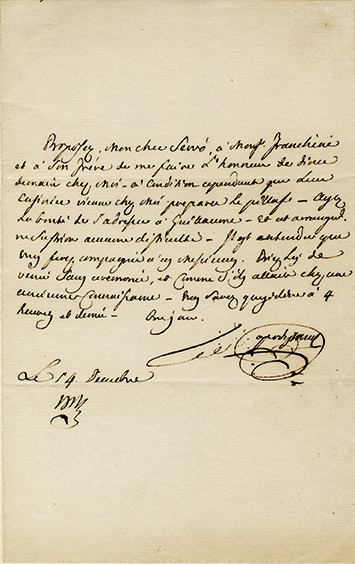 Proposez, Mon cher Servó, à Monsr. Franchini
et à son frère de me faire l'honneur de diner
demain chez moi – à Condition cependant que leur
cuisinier vienne chez moi preparer le pillaf – ayez
la bonté de l'adresser à Guillaume – Et cet arrangement
ne souffrira aucune difficulté – Il est entendu que
vous
venir sans ceremonie, et Comme s'ils allaient chez une
ancienne Connaissance – Vous savez qu'on dine à 4
heures et demie – Bonjour.
Le 14 Decembre